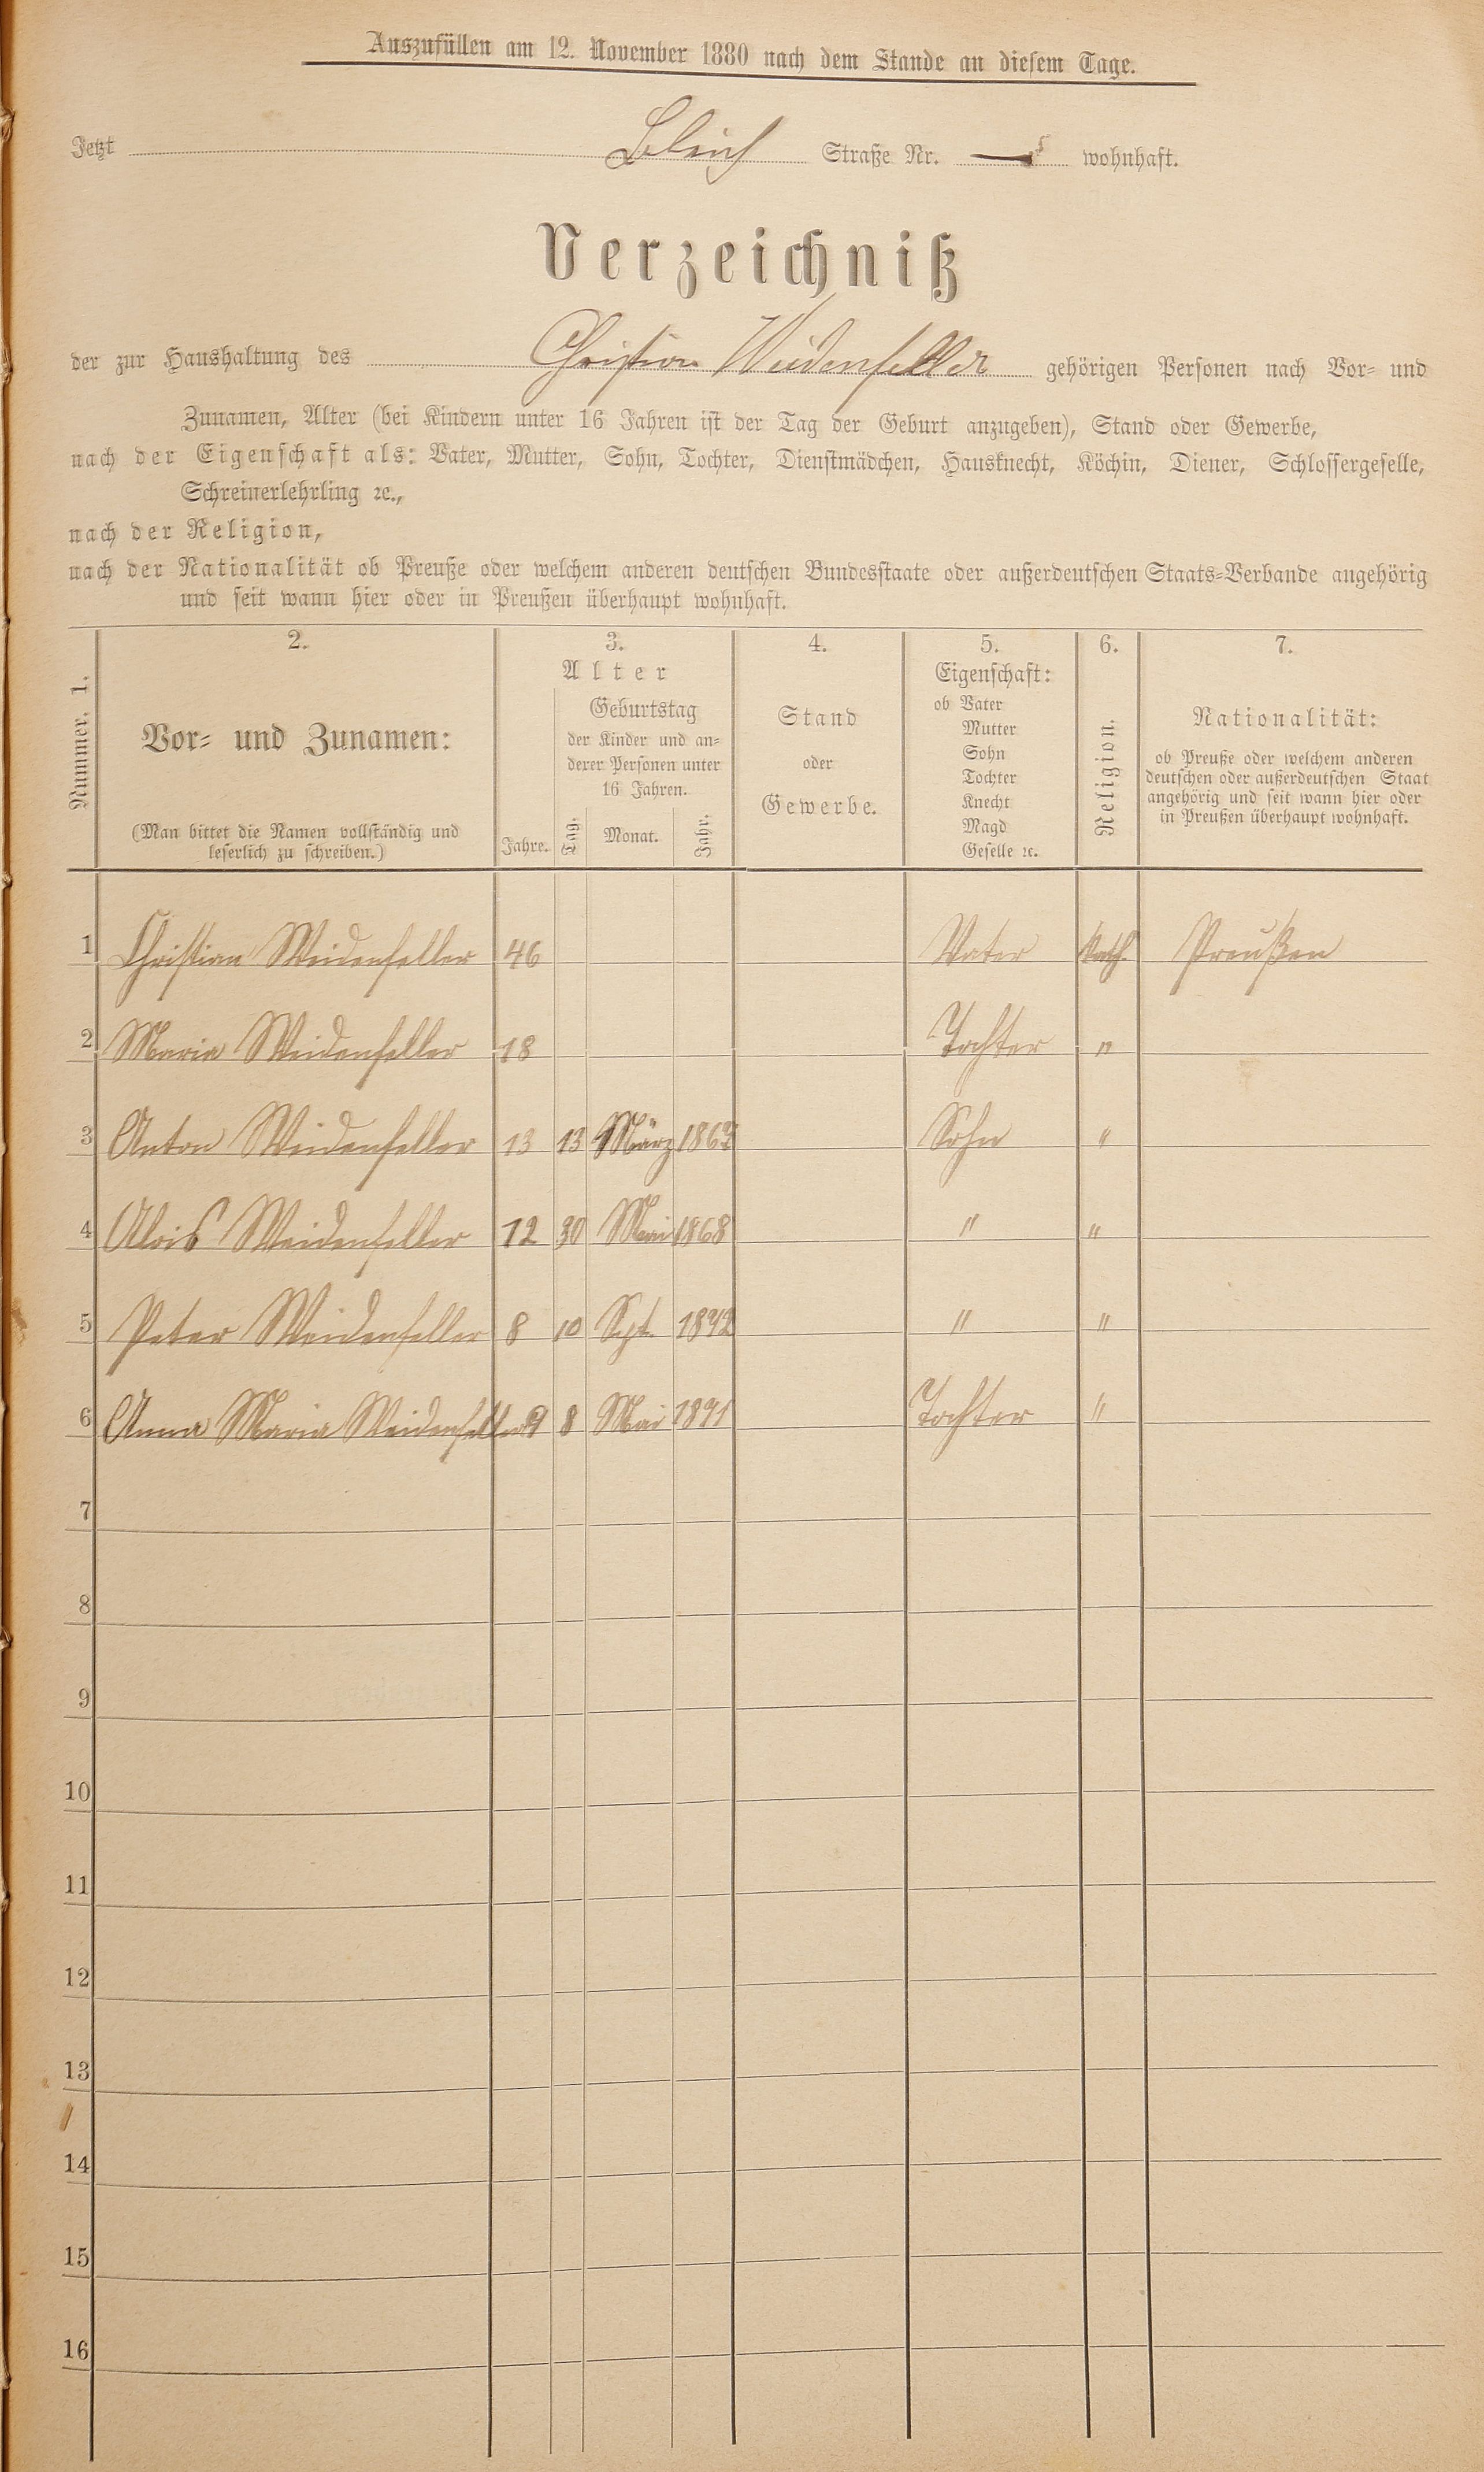 Auszufüllen am 12. November 1880 nach dem Stande an diesem Tage.
Jetzt Bleich Straße Nr. 5 wohnhaft.
Verzeichniß
der zur Haushaltung des Christian Weidenfeller gehörigen Personen nach Vor- und
Zunamen, Alter (bei Kindern unter 16 Jahren ist der Tag der Geburt anzugeben), Stand oder Gewerbe,
nach der Eigenschaft als: Vater, Mutter, Sohn, Tochter, Dienstmädchen, Hausknecht, Köchin, Diener, Schlossergeselle,
Schreinerlehrling ꝛc.,
nach der Religion,
nach der Nationalität ob Preuße oder welchem anderen deutschen Bundesstaate oder außerdeutschen Staats-Verbande angehörig
und seit wann hier oder in Preußen überhaupt wohnhaft.
Nummer. 1.
2.
Vor- und Zunamen:
(Man bittet die Namen vollständig und
leserlich zu schreiben.)
3.
Alter
Geburtstag
der Kinder und an-
derer Personen unter
16 Jahren.
Jahre. Tag. Monat. Jahr.
4.
Stand
oder
Gewerbe.
5.
Eigenschaft:
ob Vater
Mutter
Sohn
Tochter
Knecht
Magd
Geselle ꝛc.
6.
Religion.
7.
Nationalität:
ob Preuße oder welchem anderen
deutschen oder außerdeutschen Staat
angehörig und seit wann hier oder
in Preußen überhaupt wohnhaft.
1 Christian Weidenfeller 46 Vater Kath. Preußen
2 Maria Weidenfeller 18 Tochter "
3 Anton Weidenfeller 13 13 März Sohn "
4 Alois Weidenfeller 12 30 Mai 1868 " "
5 Peter Weidenfeller 8 10 Sept. 1872 " "
6 Anna Maria Weidenfeller 9 8 Mai 1871 Tochter "
7
8
9
10
11
12
13
14
15
16